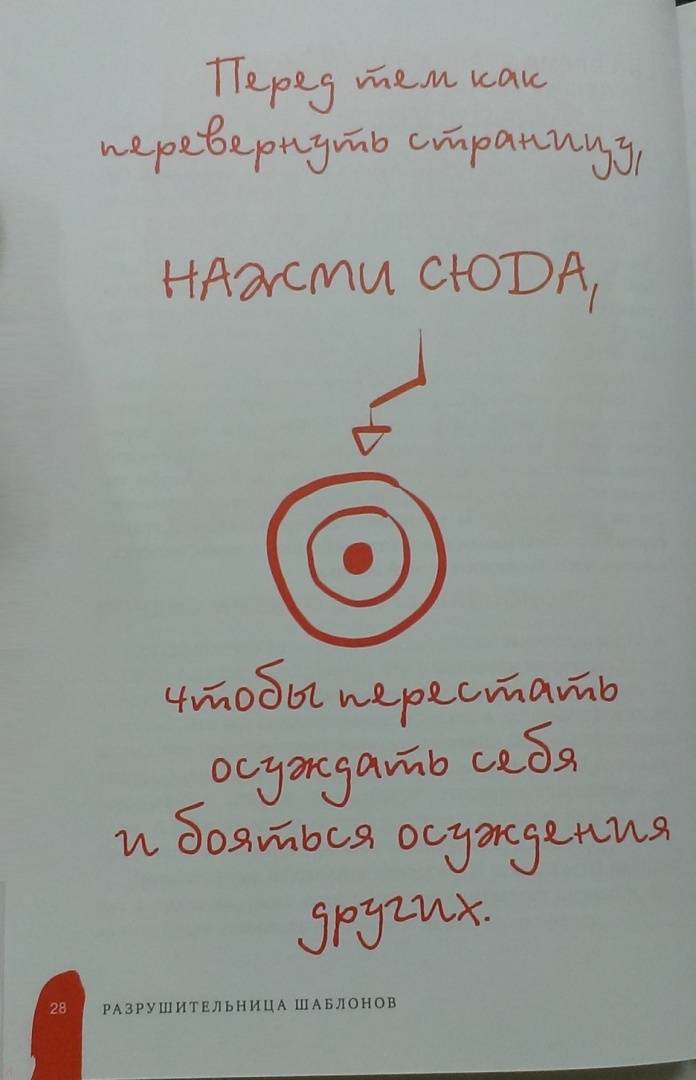 Перед тем как
перевернуть страницу,
НАЖМИ СЮДА,
чтобы перестать
осуждать себя
и бояться осуждения
других.
28 РАЗРУШИТЕЛЬНИЦА ШАБЛОНОВ